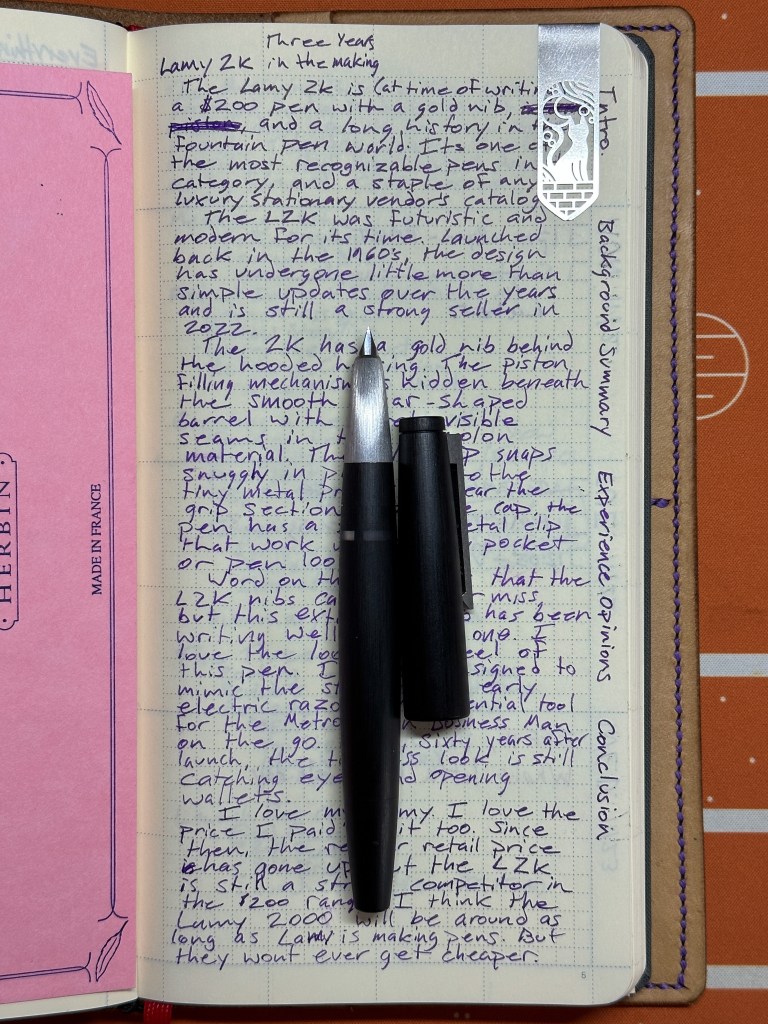 Three Years
Lamy 2K in the making
The Lamy 2k is (at time of
a $200 pen with a gold nib,
and a long history in
fountain pen world. Its one
the most recognizable pens in
category, and a staple of any
luxury stationary vendors
The L2K was futuristic and
modern for its time. Launched
back in the 1960's, the design
has undergone little more than
simple updates over the years
and is still a strong seller in
2022.
The 2K has a gold nib behind
the hooded The piston
filling mechanism is hidden beneath
the smooth -shaped
barrel with visible
seams in
material. snaps
snuggly in the
tiny metal the
grip section cap, the
pen has a clip
that work pocket
or pen
Word on that the
L2K nibs miss,
but this has been
writing well one. I
love the of
this pen. I to
mimic the early
electric tool
for the Business Man
on the go. Sixty years after
launch, the look is still
catching opening
wallets.
I love my I love the
price I paid it too. Since
then, the retail price
has gone up the L2K
is still a competitor in
the $200 I think the
Lamy 2000 will be around as
long as Lamy is making pens. But
they wont ever get cheaper.
5
Intro.
Background Summary
Experience Opinions
Conclusion
HERBIN
MADE IN FRANCE